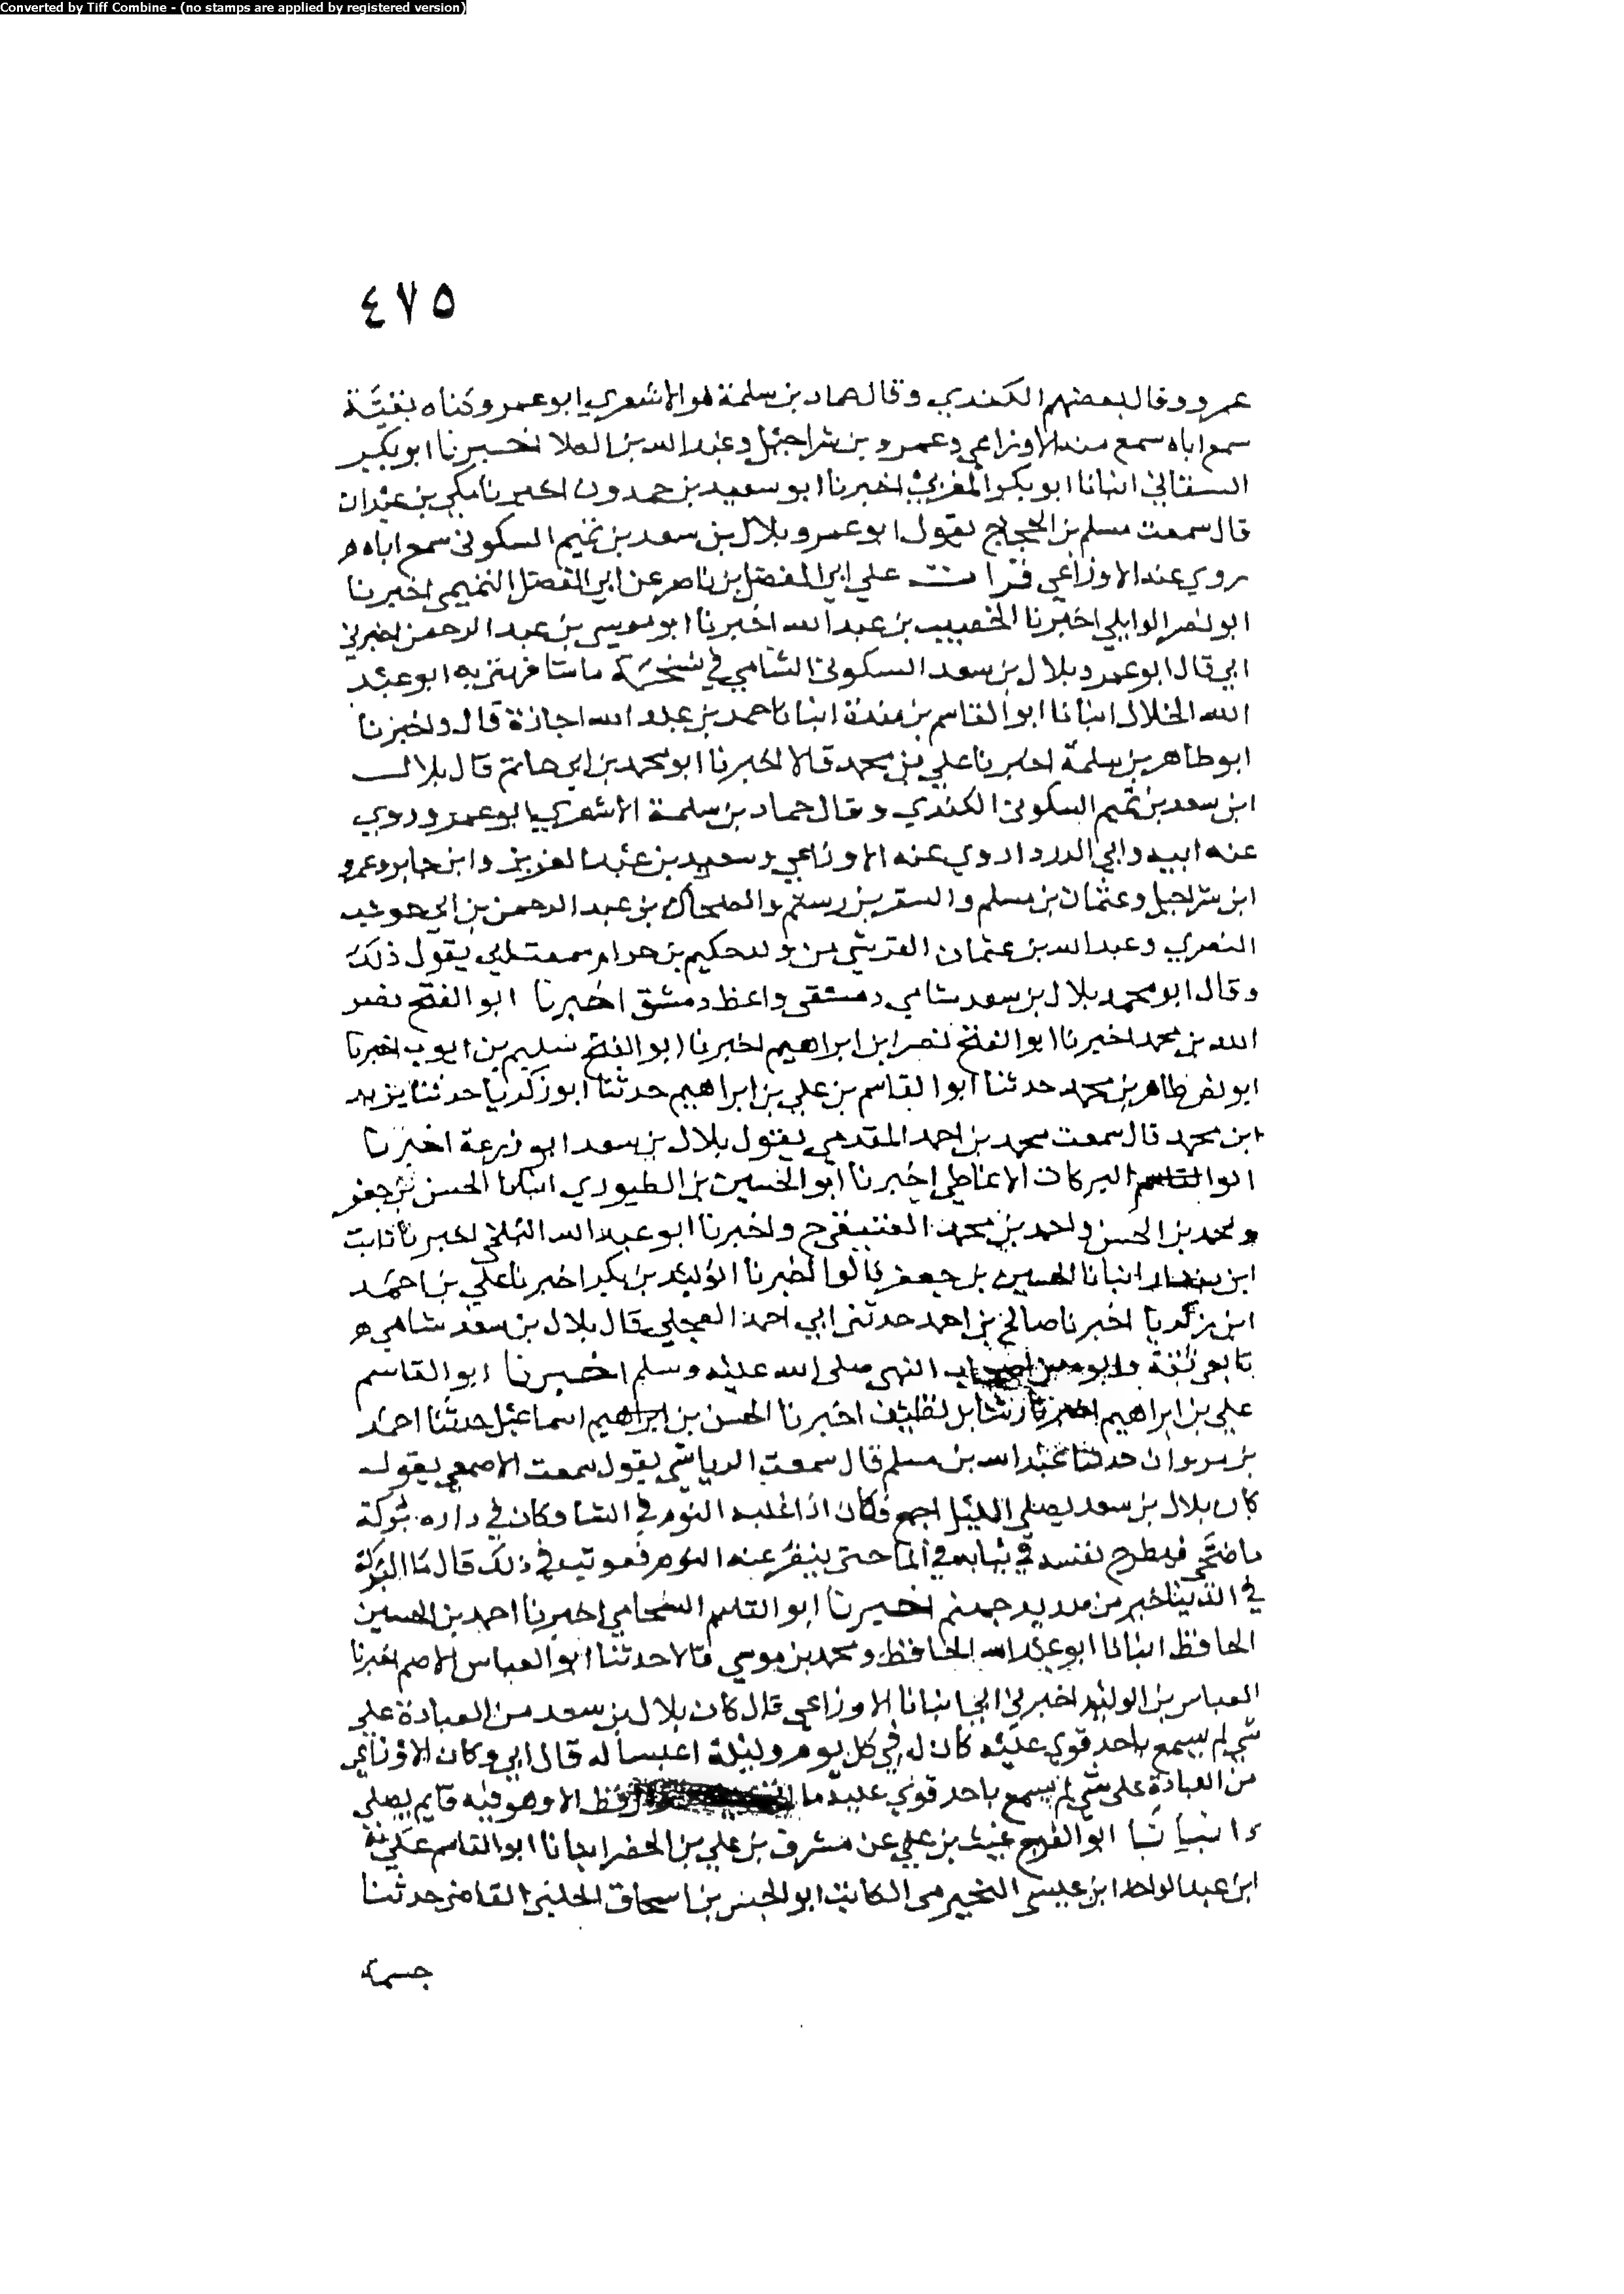 Converted by Tiff Combine - (no stamps are applied by registered version)
٤٧٥
عمرو وقال بعضهم الكندي وقال حماد بن سلمة هو الاشعري ابو عمرو كناه بقيّة
سمع اباه سمع منه الاوزاعي وعمرو بن شراحيل وعبد الله بن العلا اخبرنا ابو بكر
انبانا ابو بكر المغربي اخبرنا ابو سعيد بن حمدون اخبرنا مكي بن عبدان
قال سمعت مسلم بن الحجاج يقول ابو عمرو بلال بن سعد بن تميم السكوني سمع اباه ه
روي عنه الاوزاعي قرات علي ابي الفضل بن ناصر عن ابي الفضل التميمي اخبرنا
ابو نصر الوايلي اخبرنا الخصيب بن عبد الله اخبرنا ابو موسى بن عبد الرحمن اخبرني
ابي قال ابو عمرو بلال بن سعد السكوني الشامي في نسخة ما شافهني به ابو عبد
الله الخلال انبانا ابو القاسم بن مندة انبانا حمد بن عبد الله اجازة قال واخبرنا
ابو طاهر بن سلمة اخبرنا علي بن محمد قالا اخبرنا ابو محمد بن ابي حاتم قال بلال
ابن سعد بن تميم السكوني الكندي وقال حماد بن سلمة الاشعري ابو عمرو روي
عنه ابيه وابي الدردا روي عنه الاوزاعي وسعيد بن عبد العزيز وابن جابر وعمرو
ابن شراحيل وعثمان بن مسلم والسقر بن رستم والضحاك بن عبد الرحمن بن ابي حوشب
النصري وعبد الله بن عثمان القرشي من ولد حكيم بن حزام سمعت ابي يقول ذلك
وقال ابو محمد بلال بن سعد شامي دمشقي واعظ دمشق اخبرنا ابو الفتح نصر
الله بن محمد اخبرنا ابو الفتح نصر ابن ابراهيم اخبرنا ابو الفتح سليم بن ايوب اخبرنا
ابو نصر طاهر بن محمد حدثنا ابو القاسم بن علي بن ابراهيم حدثنا ابو زكريا حدثنا يزيد
ابن محمد قال سمعت محمد بن احمد المقدمي يقول بلال بن سعد ابو زرعة اخبرنا
ابو البركات الانماطي اخبرنا ابو الحسين بن الطيوري انبانا الحسن بن جعفر
ومحمد بن الحسن واحمد بن محمد العتيقي ح واخبرنا ابو عبد الله البلخي اخبرنا ثابت
ابن بندار انبانا الحسين بن جعفر قالوا اخبرنا الوليد بن بكر اخبرنا علي بن احمد
ابن زكريا اخبرنا صالح بن احمد حدثني ابي احمد العجلي قال بلال بن سعد شامي ه
تابعي ثقة وابوه من اصحاب النبي صلى الله عليه وسلم اخبرنا ابو القاسم
علي بن ابراهيم اخبرنا رشا بن نظيف اخبرنا الحسن بن ابراهيم اسماعيل حدثنا احمد
بن مروان حدثنا عبد الله بن مسلم قال سمعت الرياشي يقول سمعت الاصمعي يقول
كان بلال بن سعد يصلي الليل اجمع فكان اذا غلبه النوم في الشتا وكان في داره بركة
ما فيطرح نفسه في ثيابه في الما حتى ينفر عنه النوم فعوتب في ذلك قال ما البركة
في الدنيا خير من صديد جهنم اخبرنا ابو القاسم الشحامي اخبرنا احمد بن الحسين
الحافظ انبانا ابو عبد الله الحافظ ومحمد بن موسي قالا حدثنا ابو العباس الاصم اخبرنا
العباس بن الوليد اخبرني ابي انبانا الاوزاعي قال كان بلال بن سعد من العبادة علي
شي لم يسمع باحد قوي عليه كان له في كل يوم وليلة اغتساله قال ابي وكان الاوزاعي
من العبادة على شي لم يسمع باحد قوي عليه ما قط الا وهو فيه قايم يصلي
وانبانا ابو الفرج غيث بن علي عن مشرف بن علي بن الخضر انبانا ابو القاسم
ابن عبد الواحد ابن عيسى النجيرمي الكاتب ابو الحسن بن اسحاق الحلبي القاضي حدثنا